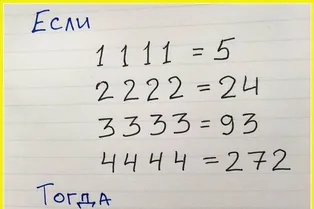 Если
1 1 1 1 = 5
2 2 2 2 = 24
3 3 3 3 = 93
4 4 4 4 = 272
Тогда